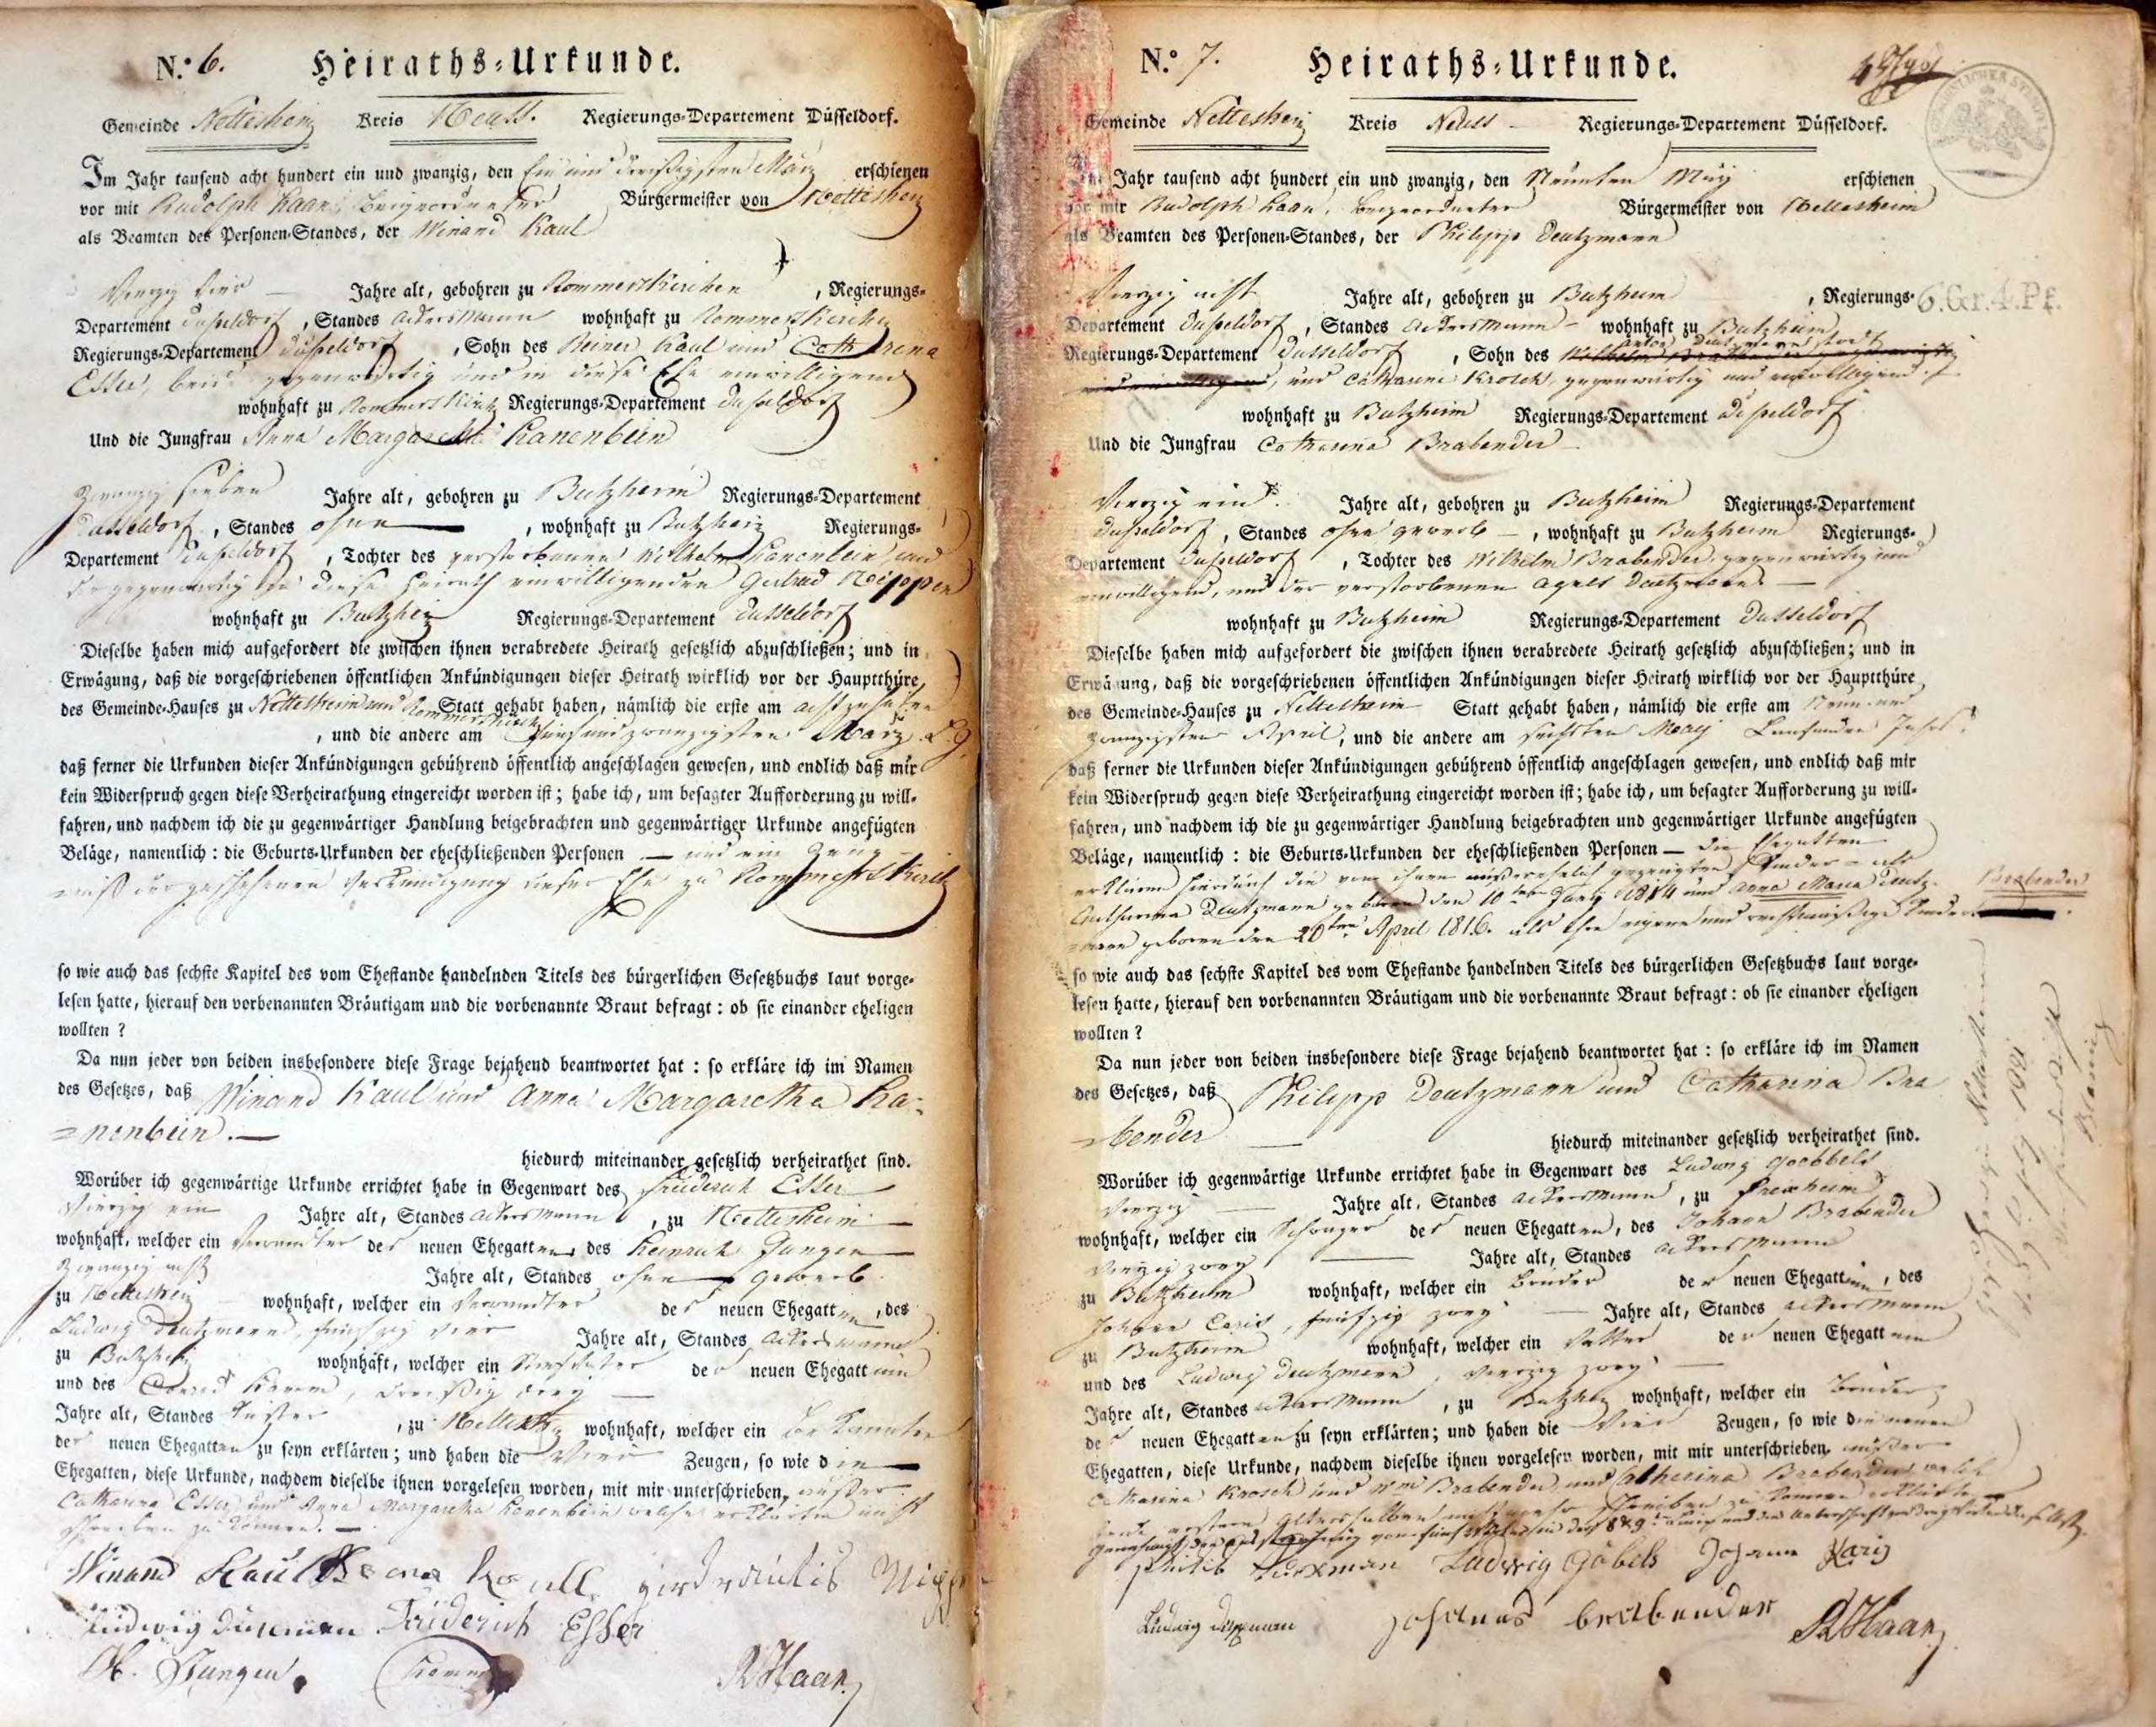 N.º 6. Heiraths-Urkunde.
Gemeinde Nettesheim Kreis Neuss. Regierungs-Departement Düsseldorf.
Im Jahr tausend acht hundert ein und zwanzig, den ein und dreißigsten März erschienen
vor mir Rudolph Haan, Beigeordneter Bürgermeister von Nettesheim
als Beamten des Personen-Standes, der Winand Kaul
Vierzig vier Jahre alt, gebohren zu Rommerskirchen, Regierungs-
Departement Düsseldorf, Standes Ackersmann wohnhaft zu Rommerskirchen
Regierungs-Departement Düsseldorf, Sohn des Reiner Kaul und Catharina
Esser, beide gegenwärtig und in diese Ehe einwilligend
wohnhaft zu Rommerskirch Regierungs-Departement Düsseldorf
Und die Jungfrau Anna Margaretha Hanenbein
Zwanzig sieben Jahre alt, gebohren zu Butzheim Regierungs-Departement
Düsseldorf, Standes ohne, wohnhaft zu Butzheim Regierungs-
Departement Düsseldorf, Tochter des verstorbenen Wilhelm Hanenbein und
der gegenwärtig in diese Heirath einwilligenden Gertrud
wohnhaft zu Butzheim Regierungs-Departement Düsseldorf
Dieselbe haben mich aufgefordert die zwischen ihnen verabredete Heirath gesetzlich abzuschließen; und in
Erwägung, daß die vorgeschriebenen öffentlichen Ankündigungen dieser Heirath wirklich vor der Hauptthüre
des Gemeinde-Hauses zu Nettesheim und Rommerskirch Statt gehabt haben, nämlich die erste am achtzehnten
, und die andere am fünf und zwanzigsten März
daß ferner die Urkunden dieser Ankündigungen gebührend öffentlich angeschlagen gewesen, und endlich daß mir
kein Widerspruch gegen diese Verheirathung eingereicht worden ist; habe ich, um besagter Aufforderung zu will-
fahren, und nachdem ich die zu gegenwärtiger Handlung beigebrachten und gegenwärtiger Urkunde angefügten
Beläge, namentlich: die Geburts-Urkunden der eheschließenden Personen — und ein Zeug-
niß der geschehenen Verkündigung dieser Ehe zu Rommerskirch
so wie auch das sechste Kapitel des vom Ehestande handelnden Titels des bürgerlichen Gesetzbuchs laut vorge-
lesen hatte, hierauf den vorbenannten Bräutigam und die vorbenannte Braut befragt: ob sie einander eheligen
wollten?
Da nun jeder von beiden insbesondere diese Frage bejahend beantwortet hat: so erkläre ich im Namen
des Gesetzes, daß Winand Kaul und Anna Margaretha Ha-
nenbein. —
hiedurch miteinander gesetzlich verheirathet sind.
Worüber ich gegenwärtige Urkunde errichtet habe in Gegenwart des Friderich Esser
Vierzig ein Jahre alt, Standes Ackersmann, zu Nettesheim
wohnhaft, welcher ein Verwandter des neuen Ehegatten, des Heinrich Jungen
Zwanzig acht Jahre alt, Standes ohne Gewerb
zu Nettesheim wohnhaft, welcher ein Verwandter des neuen Ehegatten, des
Ludwig Deutzmann, fünfzig vier Jahre alt, Standes Ackersmann
zu Butzheim wohnhaft, welcher ein Stiefvater der neuen Ehegattinn
und des Conrad, dreißig drey
Jahre alt, Standes Küster, zu Nettesheim wohnhaft, welcher ein Bekannter
der neuen Ehegatten zu seyn erklärten; und haben die vier Zeugen, so wie die
Ehegatten, diese Urkunde, nachdem dieselbe ihnen vorgelesen worden, mit mir unterschrieben, außer
Catharina Esser und Anna Margaretha Hanenbein welche erklärten nicht
schreiben zu können. —
Winand Kaul
Friderich Esser
H. Jungen
RHaan
N.º 7. Heiraths-Urkunde.
Gemeinde Nettesheim Kreis Neuss Regierungs-Departement Düsseldorf.
Im Jahr tausend acht hundert ein und zwanzig, den Neunten May erschienen
vor mir Rudolph Haan, Beigeordneter Bürgermeister von Nettesheim
als Beamten des Personen-Standes, der Philipp Deutzmann
Vierzig acht Jahre alt, gebohren zu Butzheim, Regierungs-
6.Gr.4.Pf.
Departement Düsseldorf, Standes Ackersmann wohnhaft zu Butzheim
Regierungs-Departement Düsseldorf, Sohn des Anton Deutzmann todt
und Catharina Krosch, gegenwärtig und einwilligend
wohnhaft zu Butzheim Regierungs-Departement Düsseldorf
Und die Jungfrau Catharina Brabender
Vierzig ein Jahre alt, gebohren zu Butzheim Regierungs-Departement
Düsseldorf, Standes ohne Gewerb, wohnhaft zu Butzheim Regierungs-
Departement Düsseldorf, Tochter des Wilhelm Brabender gegenwärtig und
einwilligend, und der verstorbenen Agnes Deutzmann
wohnhaft zu Butzheim Regierungs-Departement Düsseldorf
Dieselbe haben mich aufgefordert die zwischen ihnen verabredete Heirath gesetzlich abzuschließen; und in
Erwägung, daß die vorgeschriebenen öffentlichen Ankündigungen dieser Heirath wirklich vor der Hauptthüre
des Gemeinde-Hauses zu Nettesheim Statt gehabt haben, nämlich die erste am Neun und
zwanzigsten April, und die andere am sechsten May laufenden Jahrs,
daß ferner die Urkunden dieser Ankündigungen gebührend öffentlich angeschlagen gewesen, und endlich daß mir
kein Widerspruch gegen diese Verheirathung eingereicht worden ist; habe ich, um besagter Aufforderung zu will-
fahren, und nachdem ich die zu gegenwärtiger Handlung beigebrachten und gegenwärtiger Urkunde angefügten
Beläge, namentlich: die Geburts-Urkunden der eheschließenden Personen — die Ehegatten
erklären hierdurch die von ihnen außerehelich gezeugten Kinder als
Deutzmann geboren den 10ten 1814 und Anna Maria Deutz-
Brabender
mann geboren den 20ten April 1816. als ihre eigene und rechtmäßige Kinder
so wie auch das sechste Kapitel des vom Ehestande handelnden Titels des bürgerlichen Gesetzbuchs laut vorge-
lesen hatte, hierauf den vorbenannten Bräutigam und die vorbenannte Braut befragt: ob sie einander eheligen
wollten?
Da nun jeder von beiden insbesondere diese Frage bejahend beantwortet hat: so erkläre ich im Namen
des Gesetzes, daß Philipp Deutzmann und Catharina Bra
bender
hiedurch miteinander gesetzlich verheirathet sind.
Worüber ich gegenwärtige Urkunde errichtet habe in Gegenwart des Ludwig Goebbels
Vierzig Jahre alt, Standes Ackersmann, zu Frixheim
wohnhaft, welcher ein Schwager des neuen Ehegatten, des Johann Brabender
Vierzig zwey Jahre alt, Standes Ackersmann
zu Butzheim wohnhaft, welcher ein Bruder der neuen Ehegattinn, des
Johann Caris, fünfzig zwey Jahre alt, Standes Ackersmann
zu Butzheim wohnhaft, welcher ein Vetter der neuen Ehegattinn
und des Ludwig Deutzmann, Vierzig zwey
Jahre alt, Standes Ackersmann, zu Butzheim wohnhaft, welcher ein Bruder
des neuen Ehegatten zu seyn erklärten; und haben die vier Zeugen, so wie die neuen
Ehegatten, diese Urkunde, nachdem dieselbe ihnen vorgelesen worden, mit mir unterschrieben, außer
Catharina Krosch und Wm Brabender und Catharina Brabender welche
Ludwig Göbels Johann Karis
Johanes brabender RHaan